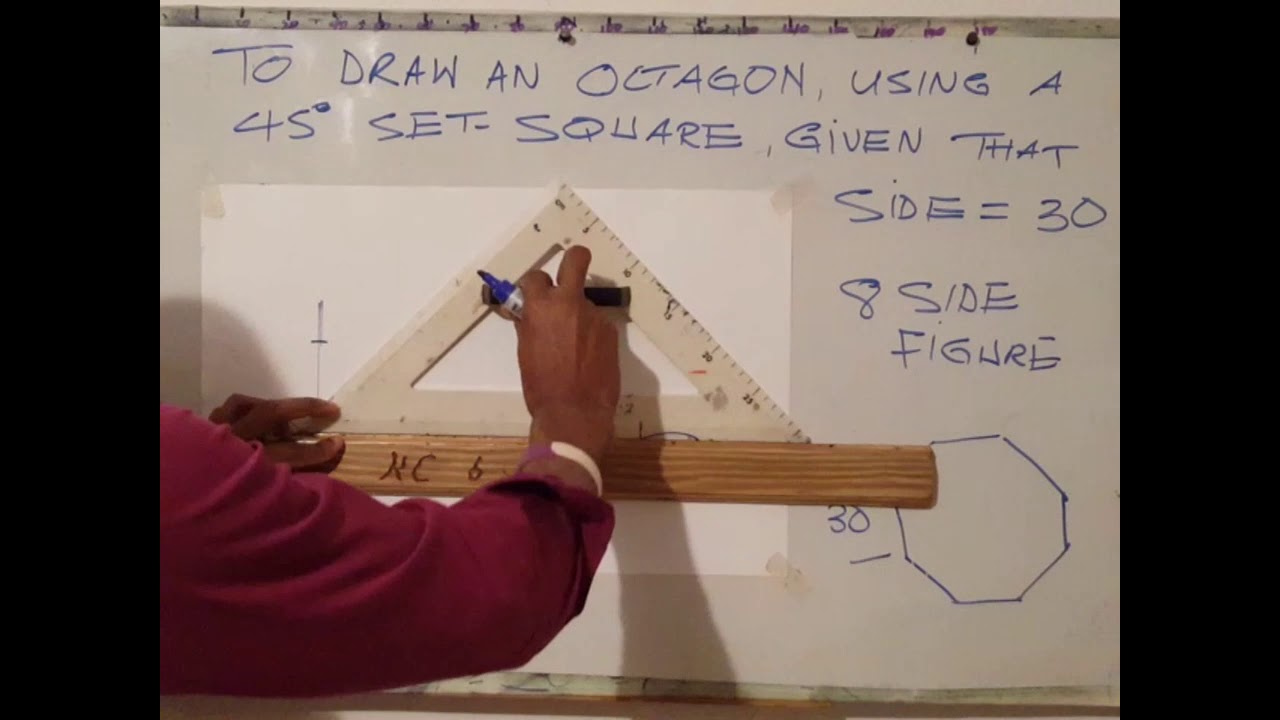 TO DRAW AN OCTAGON, USING A
45° SET-SQUARE, GIVEN THAT
SIDE = 30
8 SIDE
FIGURE
KC 6
30